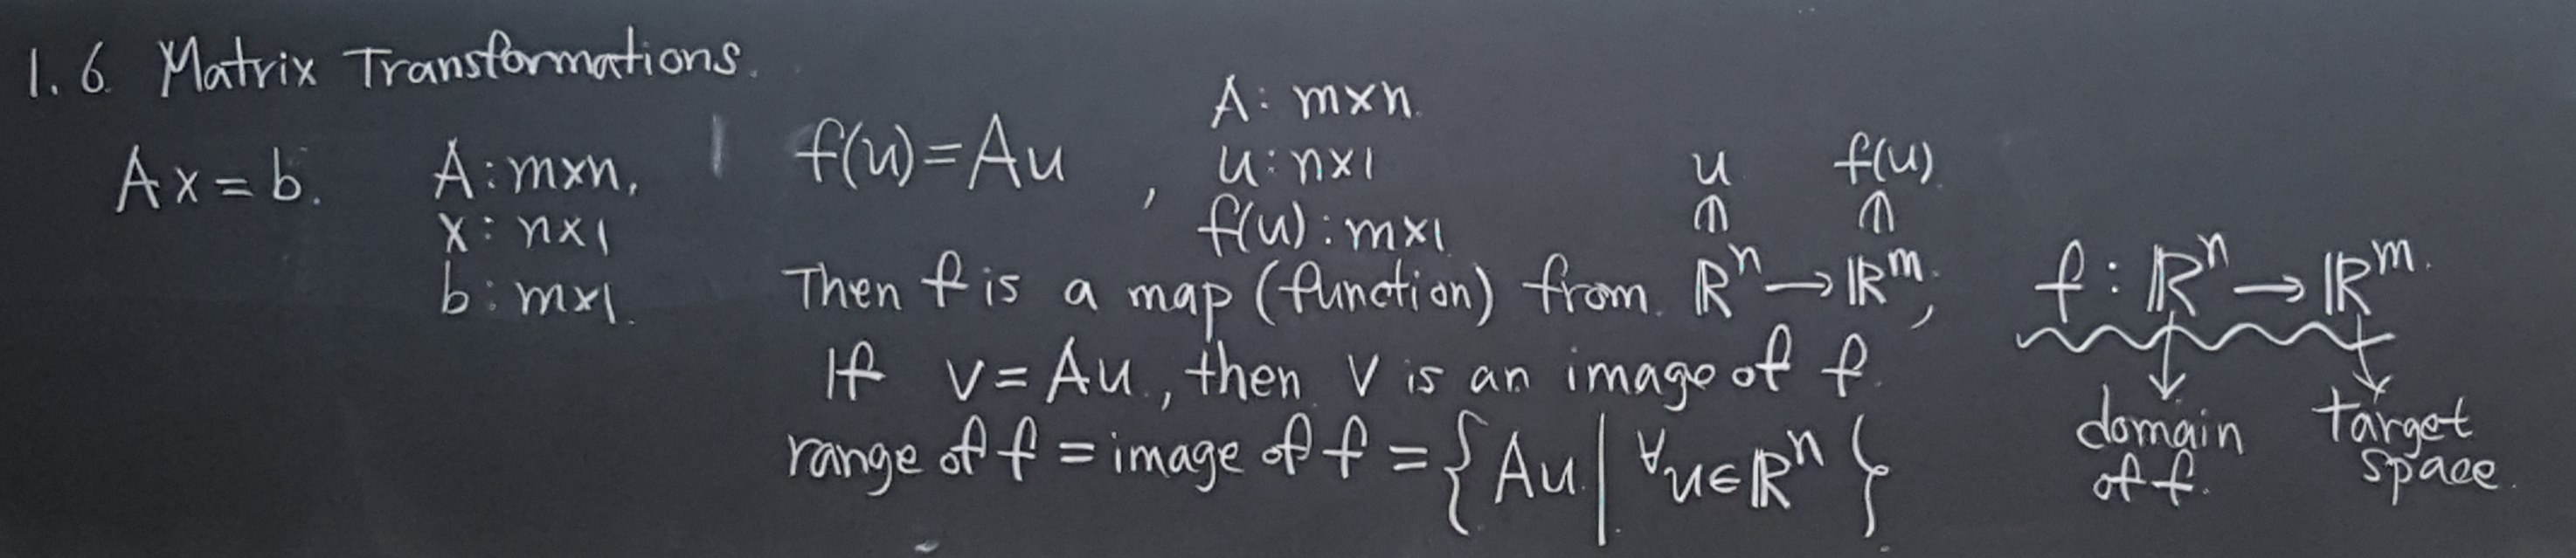 1.6 Matrix Transformations.
Ax = b.
A : m×n,
x : n×1
b : m×1.
f(u) = Au ,
A : m×n.
u : n×1
f(u) : m×1
u f(u)
⋔ ⋔
Then f is a map (function) from ℝⁿ → ℝᵐ,
If v = Au, then v is an image of f.
range of f = image of f = { Au | ∀u∈ℝⁿ }
f : ℝⁿ → ℝᵐ.
domain
of f.
target
space.